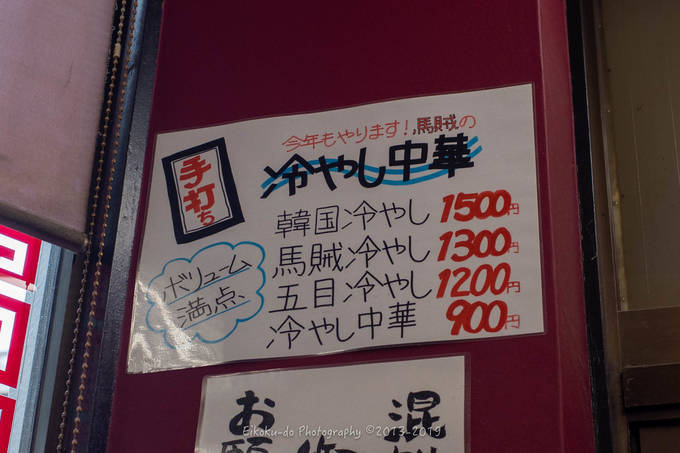 今年もやります！馬賊の
手打ち
冷やし中華
韓国冷やし 1500円
馬賊冷やし 1300円
五目冷やし 1200円
冷やし中華 900円
ボリューム
満点、
お
混
Eikoku-do Photography ©2013-2019